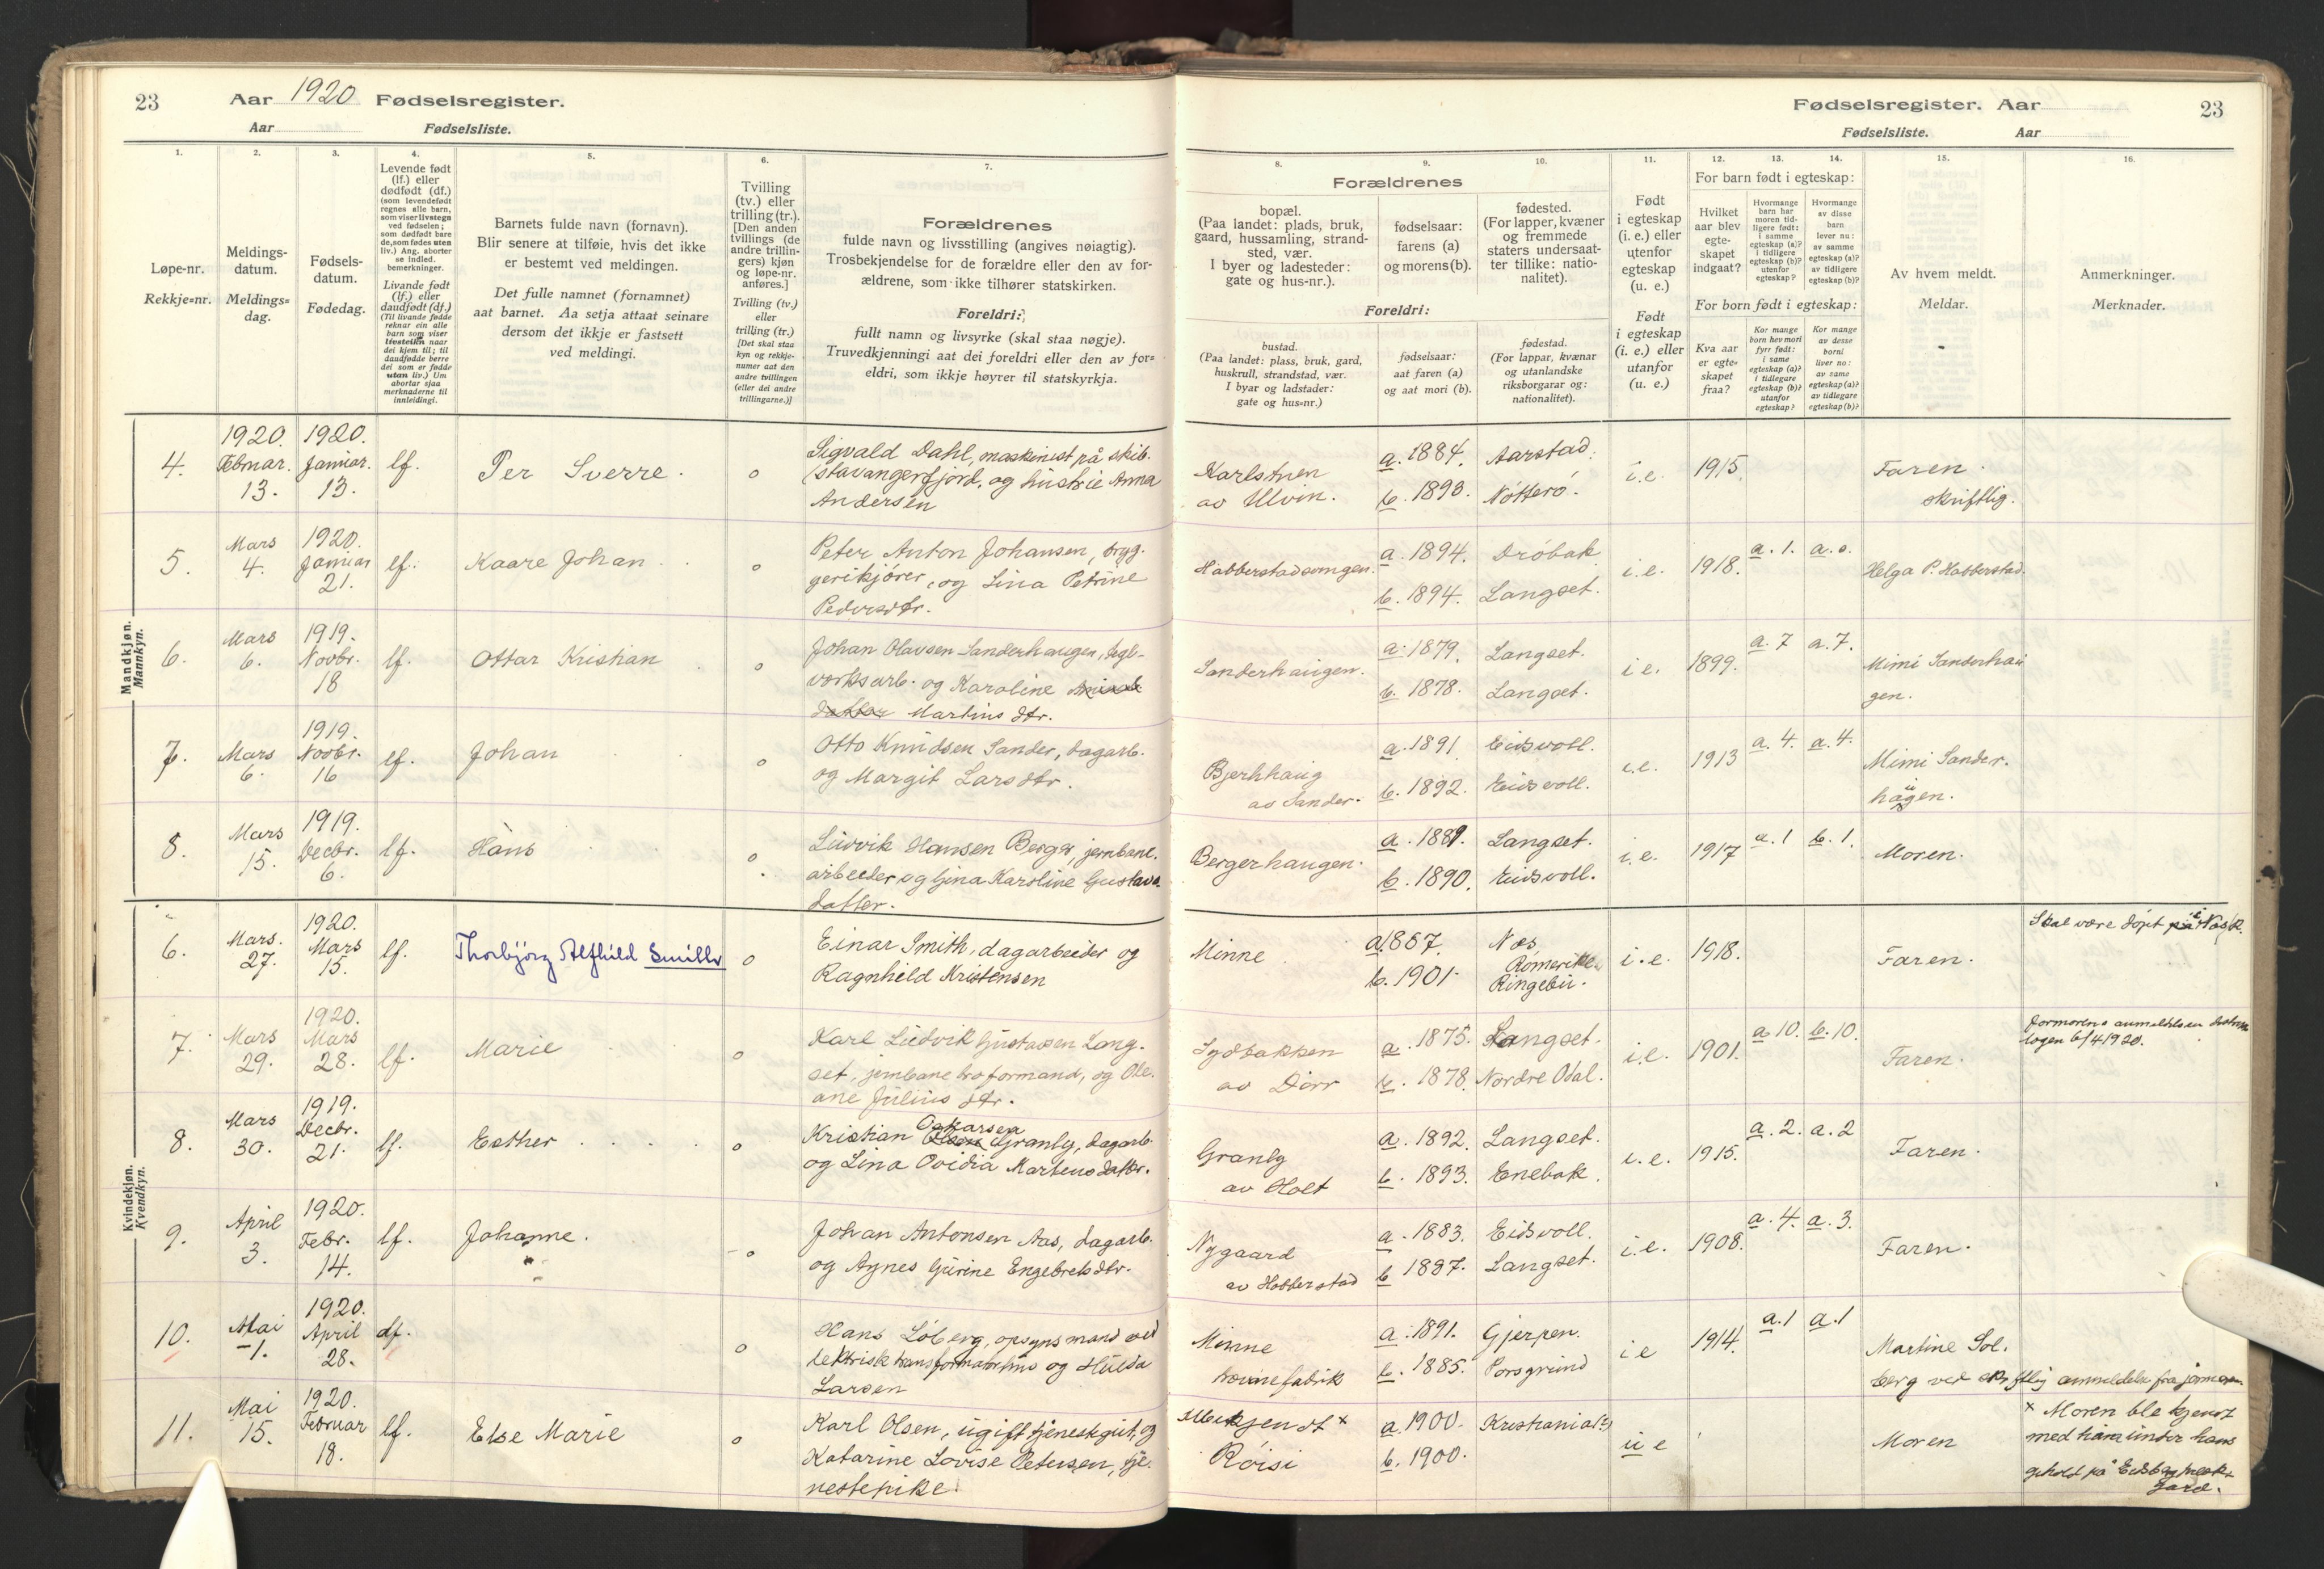 23 Aar 1920 Fødselsregister.
Aar Fødselsliste.
1.
Løpe-nr.
Rekkje=nr.
2.
Meldings-
datum.
Meldings=
dag.
3.
Fødsels-
datum.
Fødedag.
4.
Levende født
(lf.) eller
dødfødt (df.)
(som levendefødt
regnes alle barn,
som viser livstegn
ved fødselen;
som dødfødt bare
de, som fødes uten
liv.) Ang. aborter
se indled.
bemerkninger.
Livande født
(lf.) eller
daudfødt (df.)
(Til livande fødde
reknar ein alle
barn som viser
livsteikn naar
dei kjem til; til
daudfødde berre
dei som er fødde
utan liv.) Um
abortar sjaa
merknaderne til
innleidingi.
5.
Barnets fulde navn (fornavn).
Blir senere at tilføie, hvis det ikke
er bestemt ved meldingen.
Det fulle namnet (fornamnet)
aat barnet. Aa setja attaat seinare
dersom det ikkje er fastsett
ved meldingi.
6.
Tvilling
(tv.) eller
trilling (tr.).
[Den anden
tvillings (de
andre trillin-
gers) kjøn
og løpe-nr.
anføres.]
Tvilling (tv.)
eller
trilling (tr.)
[Det skal staa
kyn og rekkje-
numer aat den
andre tvillingen
(eller dei andre
trillingarne.)]
7.
Forældrenes
fulde navn og livsstilling (angives nøiagtig).
Trosbekjendelse for de forældre eller den av for-
ældrene, som ikke tilhører statskirken.
Foreldri:
fullt namn og livsyrke (skal staa nøgje).
Truvedkjenningi aat dei foreldri eller den av for=
eldri, som ikkje høyrer til statskyrkja.
Fødselsregister. Aar 23
Fødselsliste. Aar
Forældrenes
Foreldri:
8.
bopæl.
(Paa landet: plads, bruk,
gaard, hussamling, strand-
sted, vær.
I byer og ladesteder:
gate og hus-nr.).
bustad.
(Paa landet: plass, bruk, gard,
huskrull, strandstad, vær.
I byar og ladstader:
gate og hus=nr.)
9.
fødselsaar:
farens (a)
og morens (b).
fødselsaar:
aat faren (a)
og aat mori (b).
10.
fødested.
(For lapper, kvæner
og fremmede
staters undersaat-
ter tillike: natio-
nalitet).
fødestad.
(For lappar, kvænar
og utanlandske
riksborgarar og:
nationalitet).
11.
Født
i egteskap
(i. e.) eller
utenfor
egteskap
(u. e.)
Født
i egteskap
(i. e.) eller
utanfor
(u. e.)
For barn født i egteskap:
12.
Hvilket
aar blev
egte-
skapet
indgaat?
For born født i egteskap:
Kva aar
er egte=
skapet
fraa?
13.
Hvormange
barn har
moren tid-
ligere født:
i samme
egteskap (a)?
i tidligere
egteskap (b)?
utenfor
egteskap?
Kor mange
born hev mori
fyrr født:
i same
egteskap (a)?
i tidlegare
egteskap (b)?
utanfor
egteskap?
14.
Hvormange
av disse
barn
lever nu:
av samme
egteskap (a)?
av tidligere
egteskap (b)?
Kor mange
av desse
borni
liver no:
av same
egteskap (a)?
av tidlegare
egteskap (b)?
15.
Av hvem meldt.
Meldar.
16.
Anmerkninger.
Merknader.
Mandkjøn.
Mannkyn.
4. 1920. Februar. 13. 1920. Januar. 13. lf. Per Sverre. o
Sigvald Dahl, maskinist på skib.
Stavangerfjord, og hustrue Anna
Andersen
Karlstuen
av Ulvin.
a. 1884. Aarstad.
b. 1893. Nøtterø.
i.e. 1915. Faren.
skriftlig.
5. Mars 4. 1920. Januar 21. lf. Kaare Johan o
Peter Anton Johansen, bryg-
gerikjører, og Lina Petrine
Pedersdtr.
a. 1894. Drøbak
b. 1894. Langset.
i.e. 1918. a. 1. a. o. Helga P. Habberstad.
6. Mars 6. 1919. Novbr. 18 lf. Ottar Kristian o
Johan Olavsen Sanderhaugen, tegl-
verksarb. og Karoline
datter Martins dtr.
Sanderhaugen.
a. 1879. Langset.
b. 1878. Langset.
i.e. 1899. a. 7 a. 7. Mimi Sanderhau
gen.
7. Mars 6. 1919. Novbr. 16 lf. Johan o
Otto Knudsen Sander, dagarb.
og Margit Larsdtr.
Bjerkhaug
av Sander.
a. 1891. Eidsvoll.
b. 1892. Eidsvoll.
i.e. 1913 a. 4. a. 4. Mimi Sander.
haugen.
8. Mars 15. 1919. Decbr. 6. lf. Hans o
Ludvik Hansen Berger, jernbane.
arbeider og Gina Karoline Gustavs.
datter.
Bergerhaugen.
a. 1889. Langset.
b. 1890. Eidsvoll.
i.e. 1917 a. 1 b. 1. Moren.
Kvindekjøn.
Kvendkyn.
6. Mars. 27. 1920. Mars 15. lf. Thorbjørg Alfhild Smith o
Einar Smith, dagarbeider og
Ragnhild Kristensen
Minne
a. 1867. Næs Romerike.
b. 1901. Ringebu.
i.e. 1918. Faren.
Skal være døpt på i Næs k.
7. Mars 29. 1920. Mars 28. lf. Marie o
Karl Ludvik Gustavsen Lang-
set, jernbane broformand, og Ole-
ane Julius dtr.
Sydbakken
av Dorr
a. 1875. Langset.
b. 1878. Nordre Odal.
i.e. 1901. a 10. b. 10. Faren.
Jormorens anmeldelsen
6/4 1920.
8. Mars 30. 1919. Decbr. 21. lf. Esther o
Kristian Olsen Oskarsen Granly, dagarb.
og Lina Ovidia Martensdatter.
Granly
av Holt
a. 1892. Langset.
b. 1893. Enebak.
i.e. 1915. a. 2. a. 2 Faren.
9. April 3. 1920. Febr. 14. lf. Johanne. o
Johan Antonsen Aas, dagarb.
og Agnes Gurine Engebretsdtr.
Nygaard
av Habberstad
a. 1883. Eidsvoll.
b. 1887. Langset.
i.e. 1908. a. 4. a. 3. Faren.
10. Mai 1. 1920. April 28. df. o
Hans Løberg, opsynsmand ved
elektrisk transformatorhus og Hulda
Larsen
Minne
a. 1891. Gjerpen.
b. 1885. Porsgrund
i e 1914. a. 1 a. 1 Martine Sol.
berg ved skriftlig anmeldelse fra jormoren
11. Mai 15. 1920. Februar 18. lf. Else Marie o
Karl Olsen, ugift tjenestegut, og
Katarine Lovise Petersen, tje-
nestepike.
Ubekjendt x
Røisi
a. 1900. Kristiania(?)
b. 1900.
u e Moren
x Moren ble kjendt
med ham under hans
ophold på
gard.